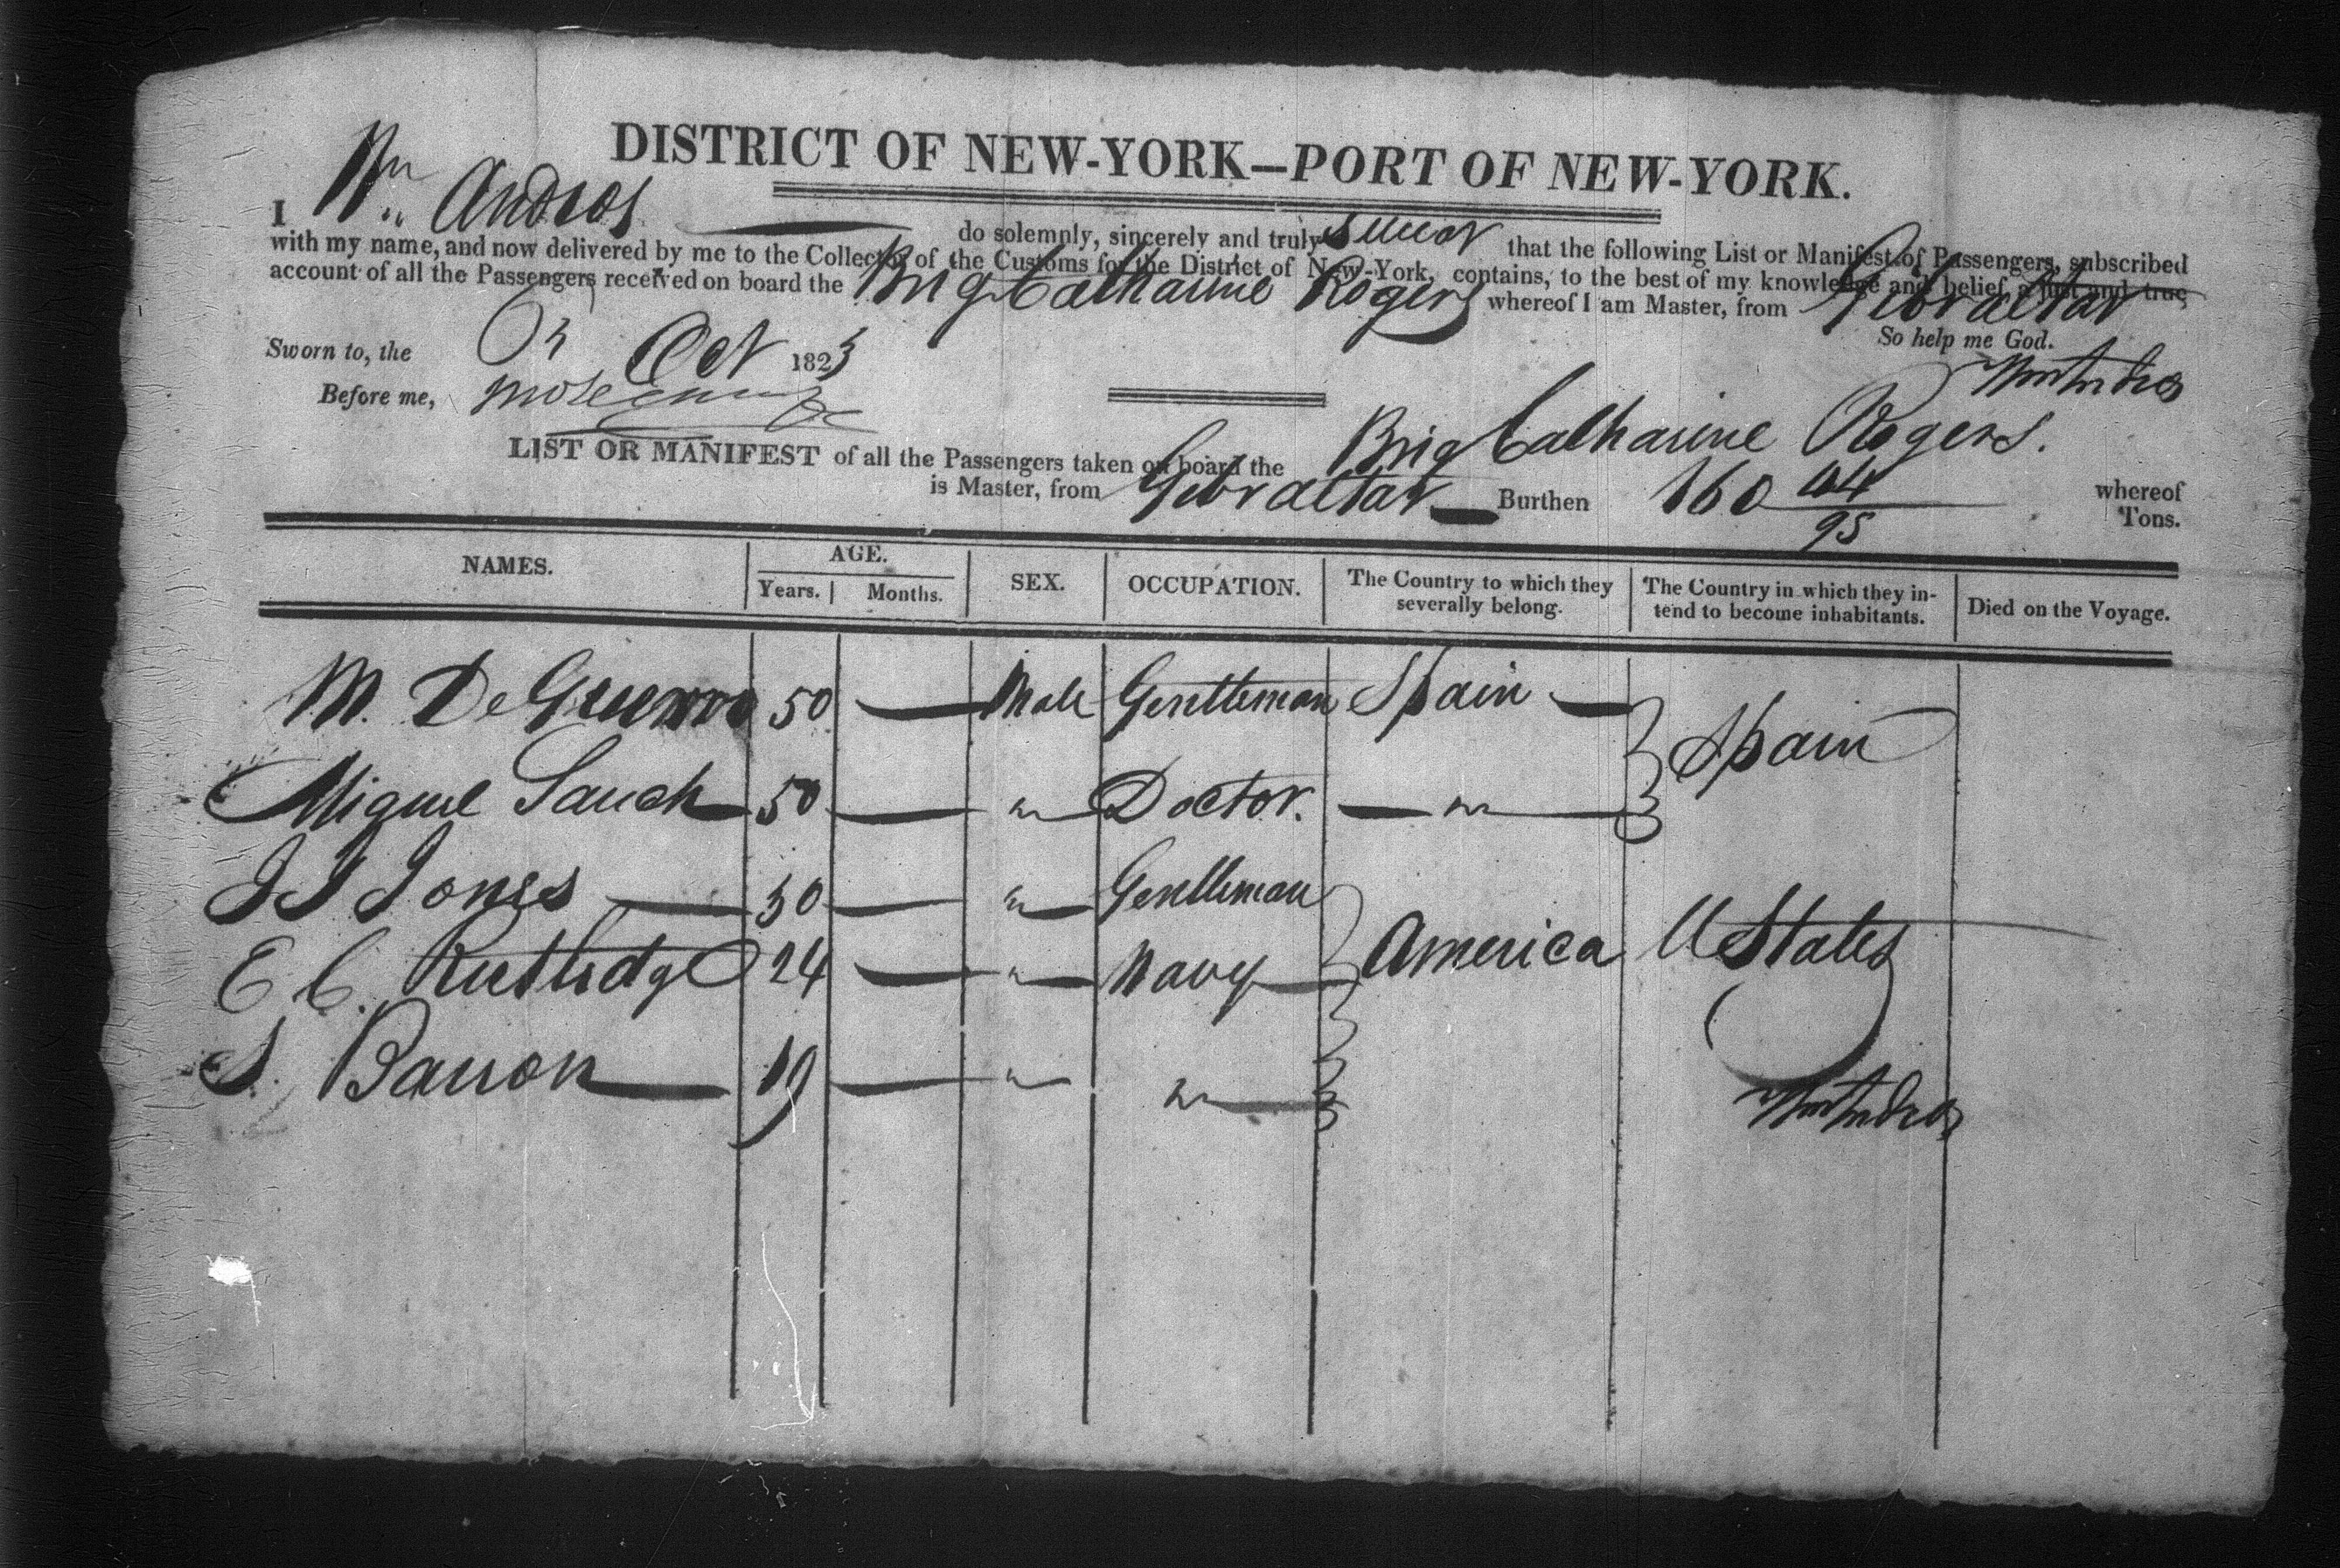 DISTRICT OF NEW-YORK—PORT OF NEW-YORK.
I Wm Andros do solemnly, sincerely and truly Swear that the following List or Manifest of Passengers, subscribed
with my name, and now delivered by me to the Collector of the Customs for the District of New-York, contains, to the best of my knowledge and belief, a just and true
account of all the Passengers received on board the Brig Catharine Rogers whereof I am Master, from Gibraltar
So help me God.
Sworn to, the 3 Oct 1823
Wm Andros
Before me,
LIST OR MANIFEST of all the Passengers taken on board the Brig Catharine Rogers. whereof
is Master, from Gibraltar Burthen 160 04/95 Tons.
NAMES. AGE. Years. Months. SEX. OCCUPATION. The Country to which they severally belong. The Country in which they intend to become inhabitants. Died on the Voyage.
M. De 50 — Male Gentleman Spain — Spain
Miguel Sanch 50 — " Doctor. — " —
J J Jones — 30 — " Gentleman
E C. Rutledge 24 — " Navy America U States
S. Barron 19 — " "
Wm Andros